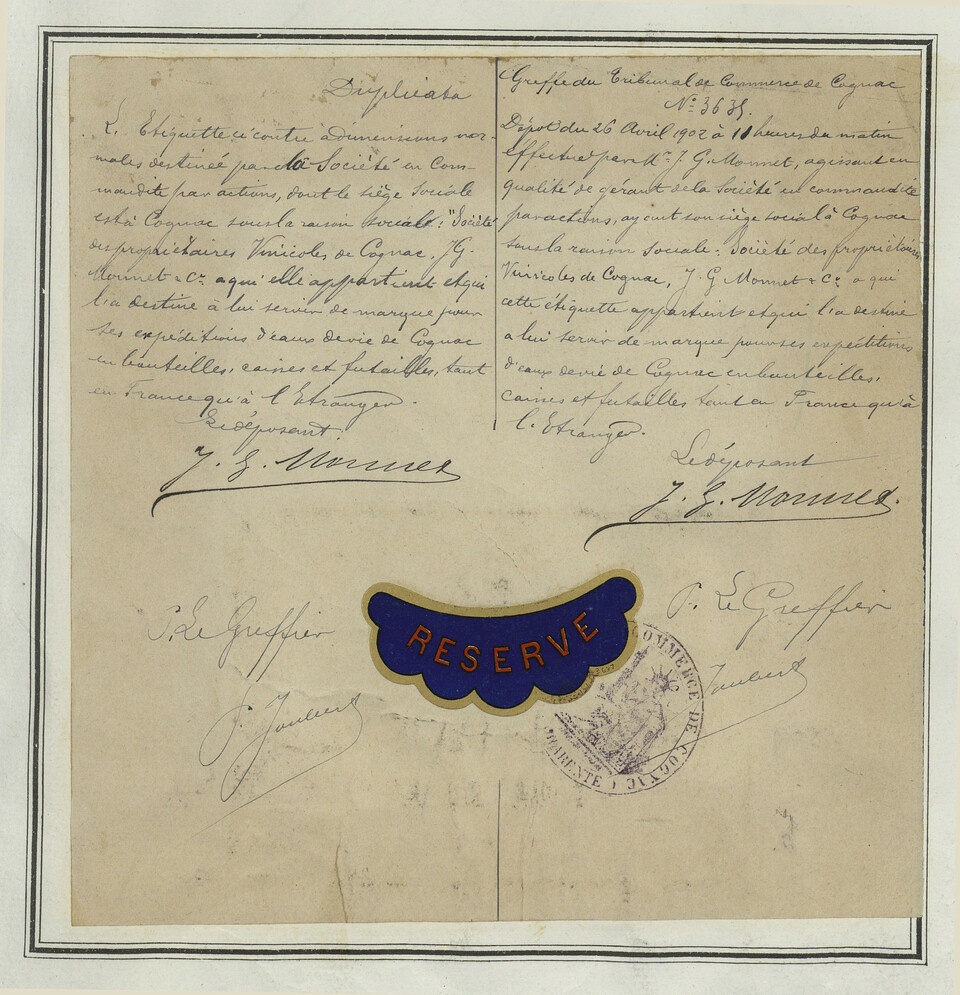 Duplicata
L. Etiquette ci contre à dimensions nor-
males destinée par la Société en Com-
mandite par actions, dont le siège Sociale
est à Cognac sous la raison sociale: "Société
des propriétaires Vinicoles de Cognac, J G.
Monnet & Cie a qui elle appartient et qui
l'a destiné à lui servir de marque pour
ses expéditions d'eaux de vie de Cognac
en bouteilles, caisses et futailles, tant
en France qu'à l'Etranger.
Le déposant.
J. G. Monnet
Greffe du Tribunal de Commerce de Cognac
No 3635.
Dépot du 26 Avril 1902 à 11 heures du matin
effectué par Mr J. G. Monnet, agissant en
qualité de gérant de la Société en commandite
par actions, ayant son siège social à Cognac
sous la raison Sociale: Société des propriétaires
Vinicoles de Cognac, J. G Monnet & Cie a qui
cette étiquette appartient et qui l'a destiné
a lui servir de marque pour ses expéditions
d'eaux de vie de Cognac en bouteilles,
caisses et futailles tant en France qu'à
l'Etranger.
Le déposant
J. G. Monnet.
P. Le Greffier
P. Joubert
RESERVE
P. Le Greffier
Joubert
COMMERCE DE COGNAC (CHARENTE)